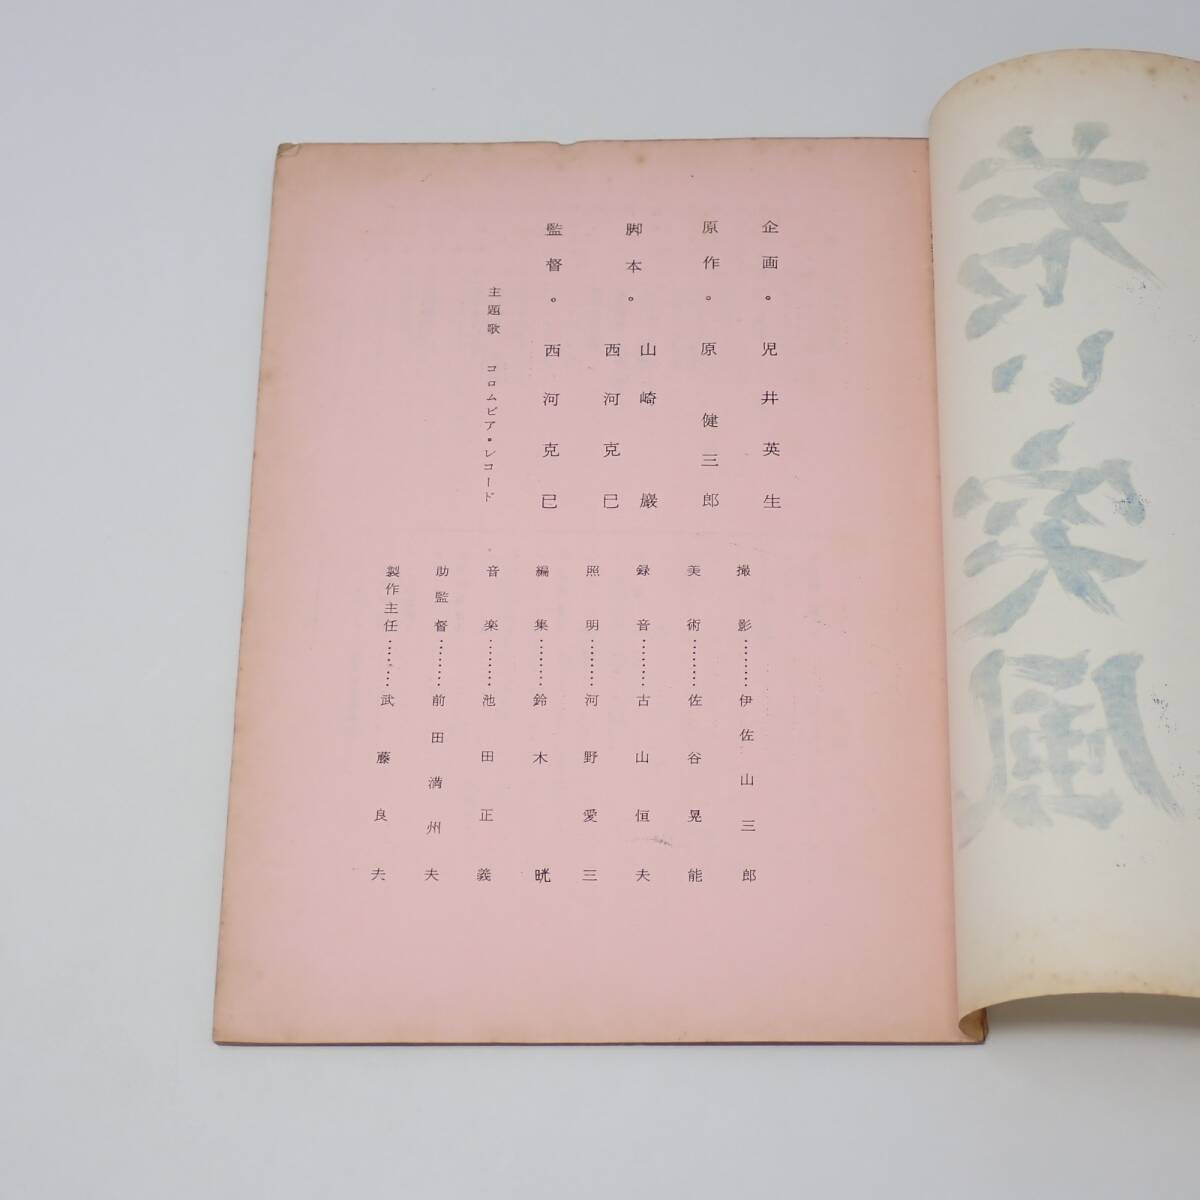 若い突風
企画。児井英生
原作。原健三郎
脚本。山崎巌
西河克巳
監督。西河克巳
主題歌 コロムビア・レコード
撮影………伊佐山三郎
美術………佐谷晃能
録音………古山恒夫
照明………河野愛三
編集………鈴木晄
音楽………池田正義
助監督………前田満州夫
製作主任………武藤良夫